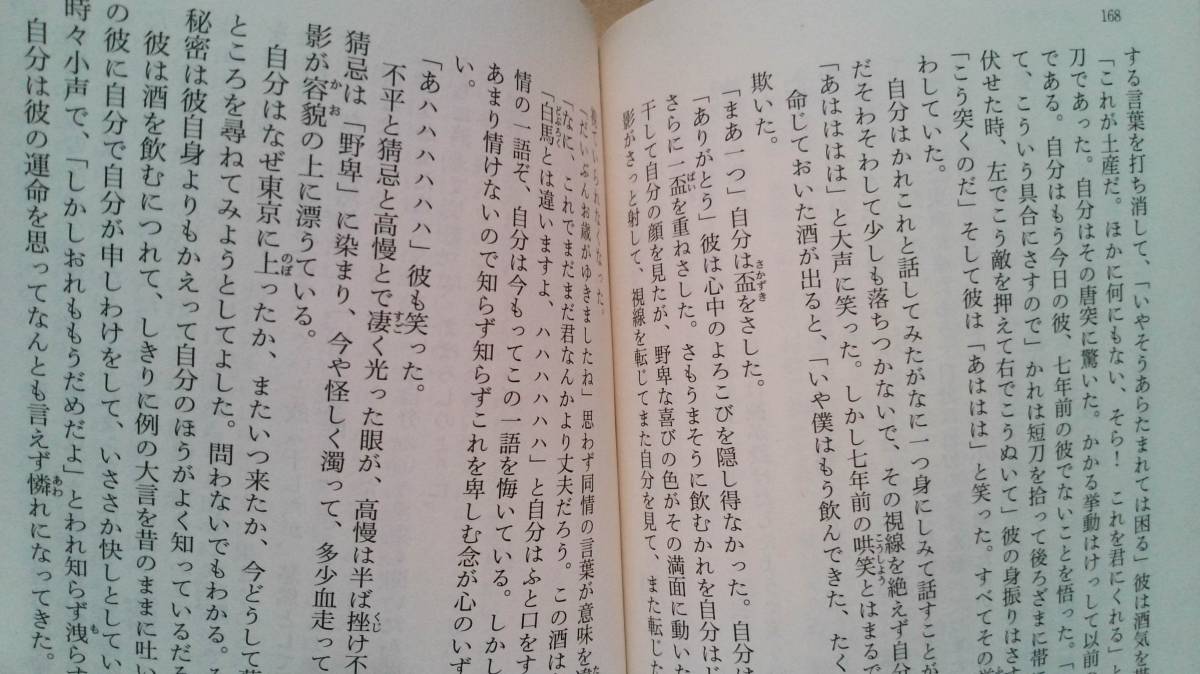 168
する言葉を打ち消して、「いやそうあらたまれては困る」彼は酒気を
「これが土産だ。ほかに何にもない、そら！　これを君にくれる」と
刀であった。自分はその唐突に驚いた。かかる挙動はけっして以前の
である。自分はもう今日の彼、七年前の彼でないことを悟った。「
て、こういう具合にさすので」かれは短刀を拾って後ろざまに帯に
伏せた時、左でこう敵を押えて右でこうぬいて」彼の身振りはさす
「こう突くのだ」そして彼は「あははは」と笑った。すべてその
わしていた。
自分はかれこれと話してみたがなに一つ身にしみて話すことが
だそわそわして少しも落ちつかないで、その視線を絶えず自分
「あはははは」と大声に笑った。しかし七年前の哄笑とはまるで
命じておいた酒が出ると、「いや僕はもう飲んできた、たく
欺いた。
「まあ一つ」自分は盃をさした。
「ありがとう」彼は心中のよろこびを隠し得なかった。自分は
さらに一盃を重ねさした。さもうまそうに飲むかれを自分はじ
干して自分の顔を見たが、野卑な喜びの色がその満面に動いた
影がさっと射して、視線を転じてまた自分を見て、また転じた
視ていられなくなった。
「だいぶんお歳がゆきましたね」思わず同情の言葉が意味を
「なに、これでまだまだ君なんかより丈夫だろう。この酒は
「白馬とは違いますよ、ハハハハハ」と自分はふと口をす
情の一語ぞ、自分は今もってこの一語を悔いている。しかし
あまり情けないので知らず知らずこれを卑しむ念が心のいず
い。
「あハハハハハハ」彼も笑った。
不平と猜忌と高慢とで凄く光った眼が、高慢は半ば挫け不
猜忌は「野卑」に染まり、今や怪しく濁って、多少血走って
影が容貌の上に漂うている。
自分はなぜ東京に上ったか、またいつ来たか、今どうして
ところを尋ねてみようとしてよした。問わないでもわかる。
秘密は彼自身よりもかえって自分のほうがよく知っているだろ
彼は酒を飲むにつれて、しきりに例の大言を昔のままに吐い
の彼に自分で自分が申しわけをして、いささか快しとしてい
時々小声で、「しかしおれももうだめだよ」とわれ知らず洩らす
自分は彼の運命を思ってなんとも言えず憐れになってきた。